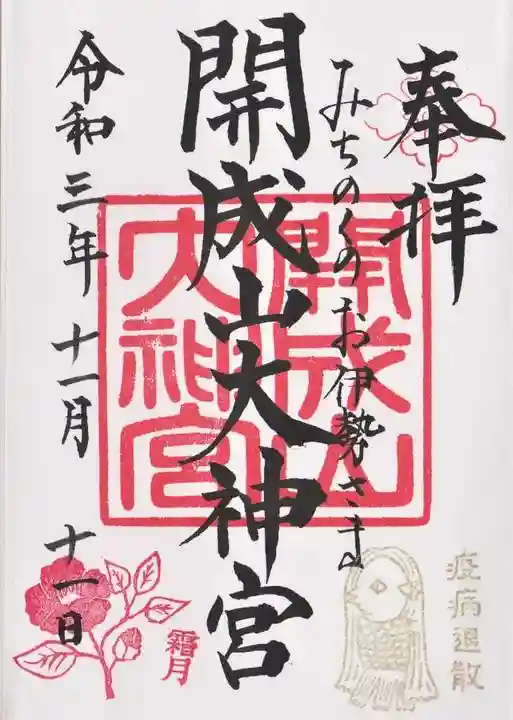 奉拝
みちのくのお伊勢さま
開成山大神宮
開成山
大神宮
令和三年 十一月 十一日
霜月
疫病退散